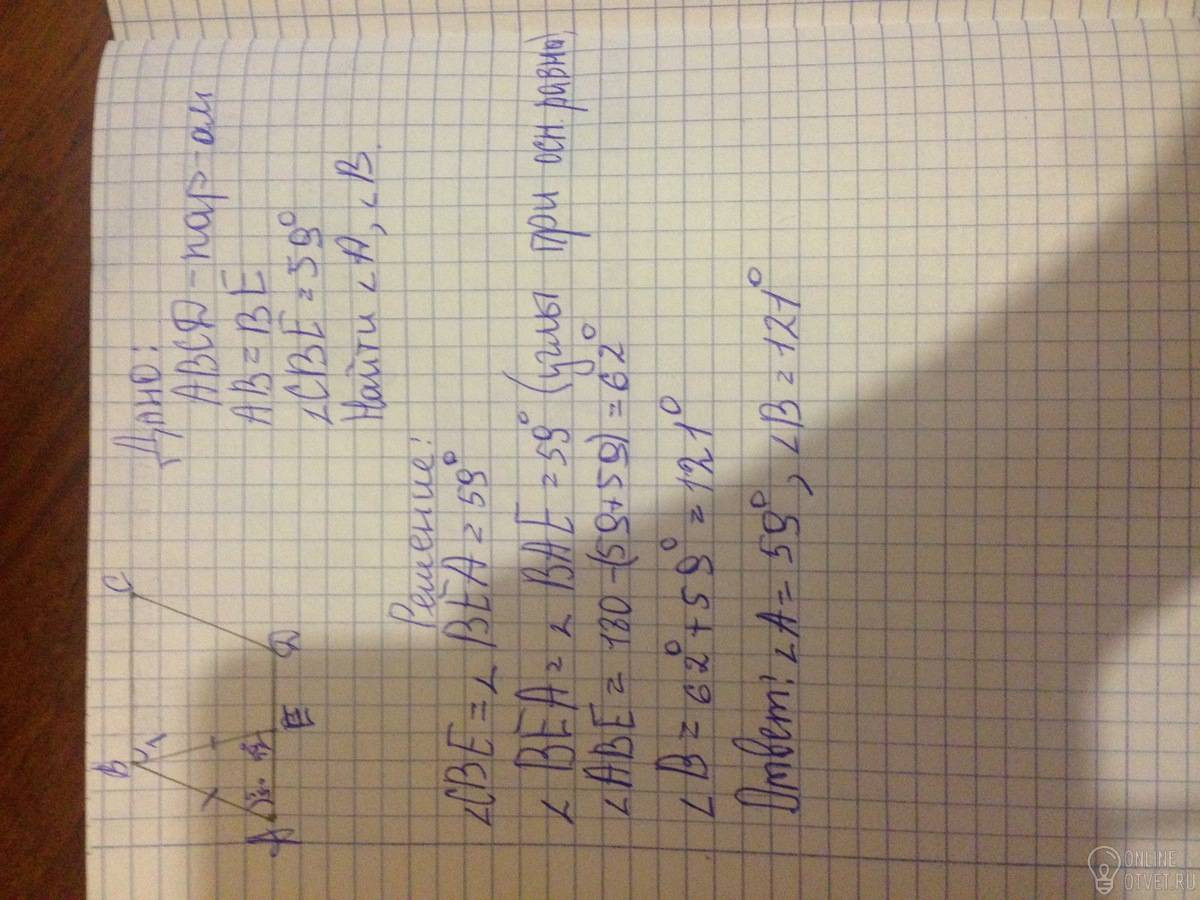 B
C
A
E
D
Дано:
ABCD - пар-ам
AB = BE
∠CBE = 59°
Найти ∠A, ∠B.
Решение:
∠CBE = ∠BEA = 59°
∠BEA = ∠BAE = 59° (углы при осн. равны)
∠ABE = 180-(59+59) = 62°
∠B = 62° + 59° = 121°
Ответ: ∠A = 59°, ∠B = 121°
ONLINE
OTVET.RU